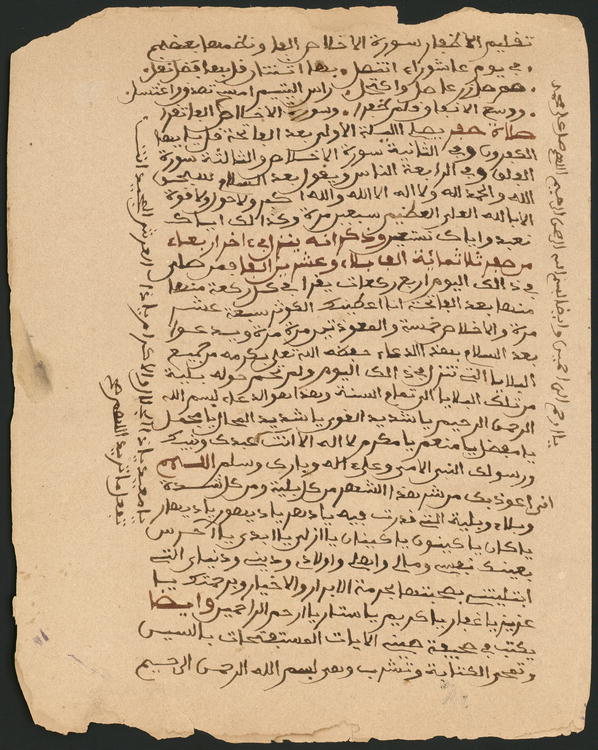 تقليم الاظفار سورة الاخلاص الف
في يوم عاشوراء
راس اليتيم امسح تصدق واغتسل
وسورة الاخلاص الف تقرا
صلاة صفر يصلي الليلة الاولى بعد الفاتحة قل يا ايها
الكفرون وفي الثانية سورة الاخلاص والثالثة سورة
الفلق وفي الرابعة الناس ويقول بعد السلام سبحن
الله والحمد لله ولا اله الا الله والله اكبر ولا حول ولا قوة
الا بالله العلي العظيم سبعين مرة وكذلك اياك
نعبد واياك نستعين وذكر انه ينزل في اخر اربعاء
من صفر ثلاثمائة الف بلاء وعشرين الفا فمن صلى
في ذلك اليوم اربع ركعات يقرا في كل ركعة منها
منها بعد الفاتحة انا اعطينك الكوثر سبعة عشر
مرة والاخلاص خمسة والمعوذتين مرة مرة ويدعوا
بعد السلام بهذ الدعاء حفظه الله تعلى بكرمه من جميع
البلايا التي تنزل في ذلك اليوم ولم تحم حوله بلية
من تلك البلايا الى تمام السنة وبهذا هو الدعاء بسم الله
الرحمن الرحيم يا شديد القوى يا شديد المحال يا مجمل
يا مفضل يا منعم يا مكرم لا اله الا انت عبدك ونبيك
ورسولك النبي الامي وعلى اله وبارك وسلم اللهم
اني اعوذ بك من شر هذا الشهر من كل بلية ومن كل شدة
وبلاء وبلية التي قدرت فيه يا دهر يا ديهور يا ديهار
يا كان يا كينون يا كينان يا ازل يا ابدي
بعينك نفسي ومالي واهلي واولادي وديني ودنياي التي
ابتليتني بصحبتها بحرمة الابرار والاخيار وبرحمتك يا
عزيز يا غفار يا كريم يا ستار يا ارحم الراحمين وايضا
يكتب في صحيفة صينى الايات المستفتحات بالسين
وتمحى الكتابة وتشرب وهي بسم الله الرحمن الرحيم
يا ارحم الراحمين وايضا بسم الله الرحمن الرحيم اللهم صل على محمد
يا معيد يا ذا الجلال والاكرام يا ذا العرش المجيد انت
تفعل ما تريد اللهم